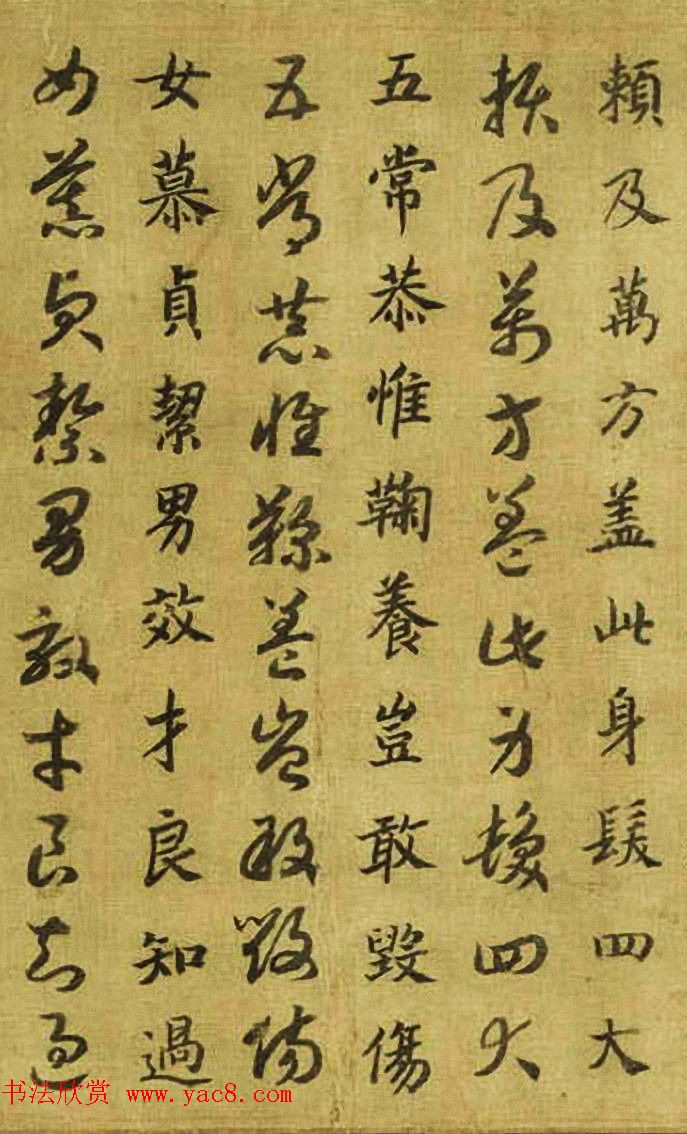 賴及萬方盖此身髮四大
賴及萬方盖此身髮四大
五常恭惟鞠養豈敢毀傷
五常恭惟鞠養豈敢毀傷
女慕貞絜男效才良知過
女慕貞絜男效才良知過
书法欣赏 www.yac8.com